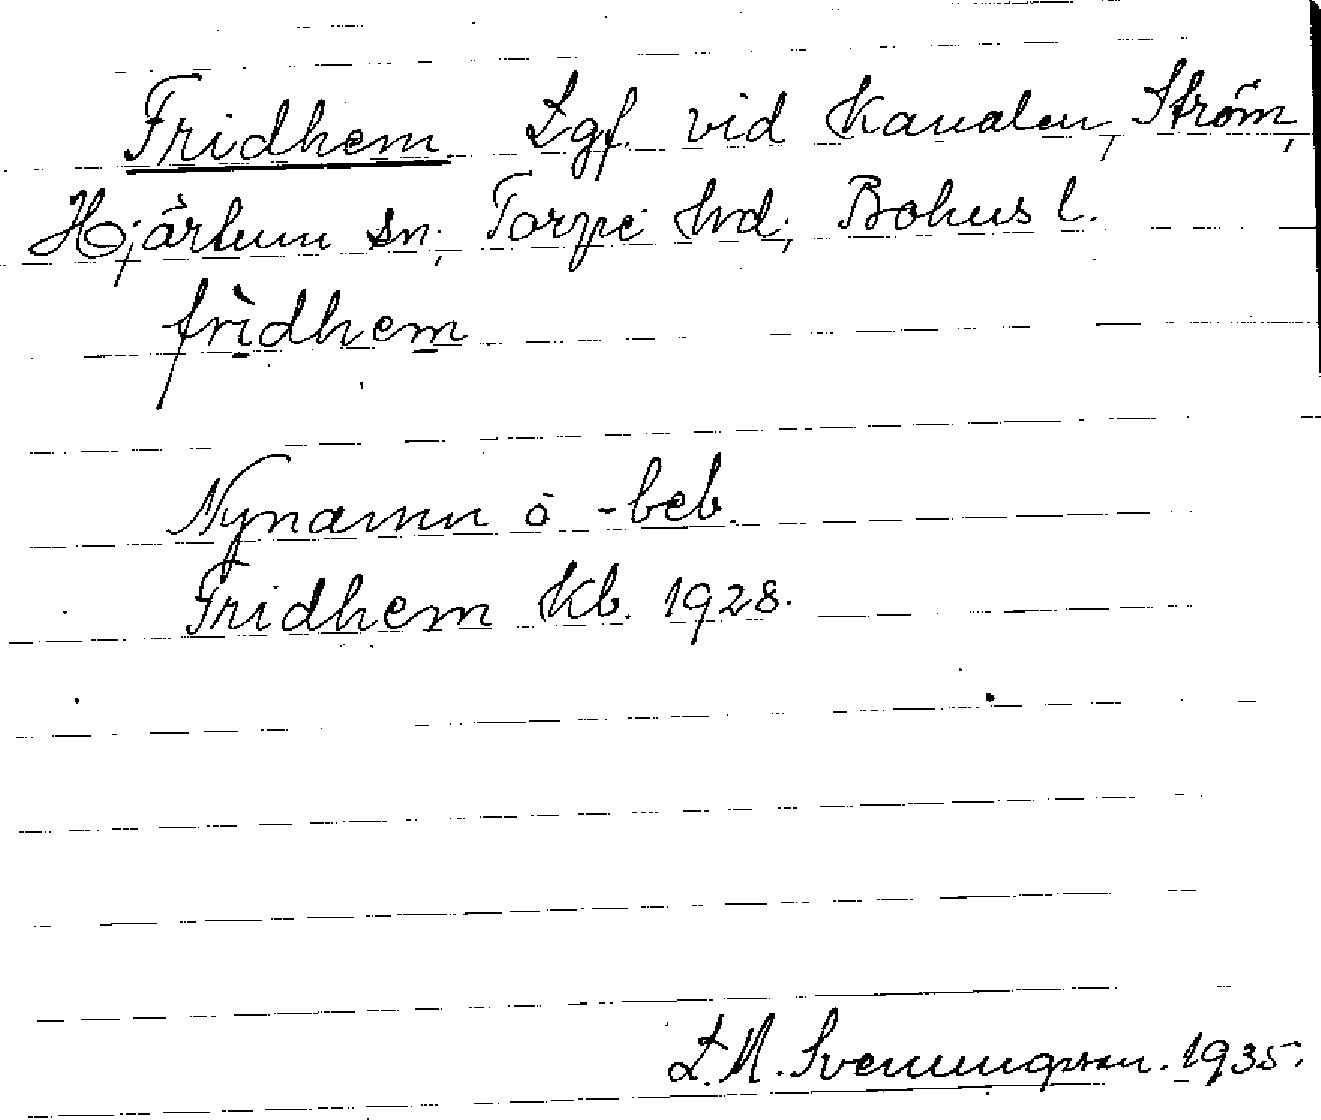 Fridhem Lgf. vid Kanalen, Ström,
Hjärtum sn, Torpe hd, Bohus l.
fridhem
Nynamn o -beb.
Fridhem Kb. 1928.
E. M. Svenningsson. 1935.